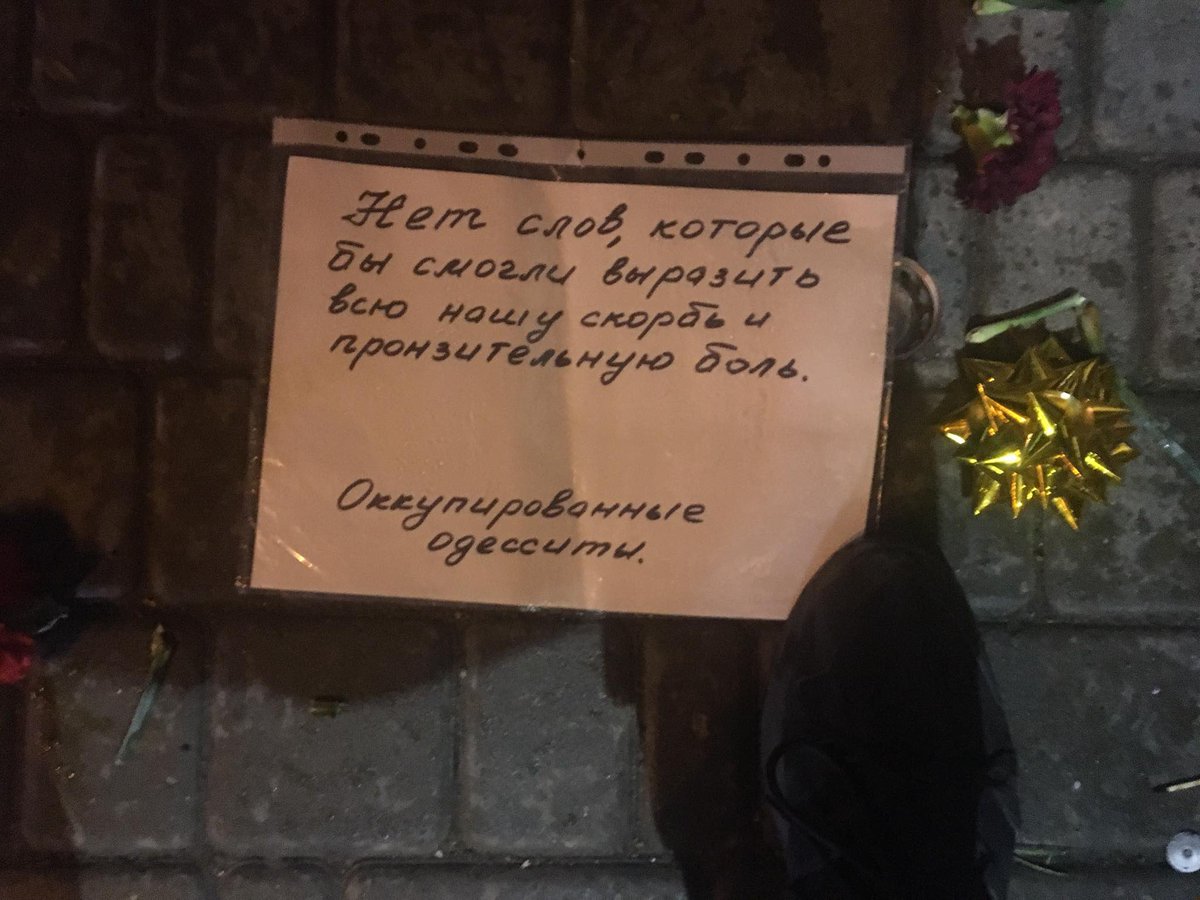 Нет слов, которые
бы смогли выразить
всю нашу скорбь и
пронзительную боль.
Оккупированные
одесситы.